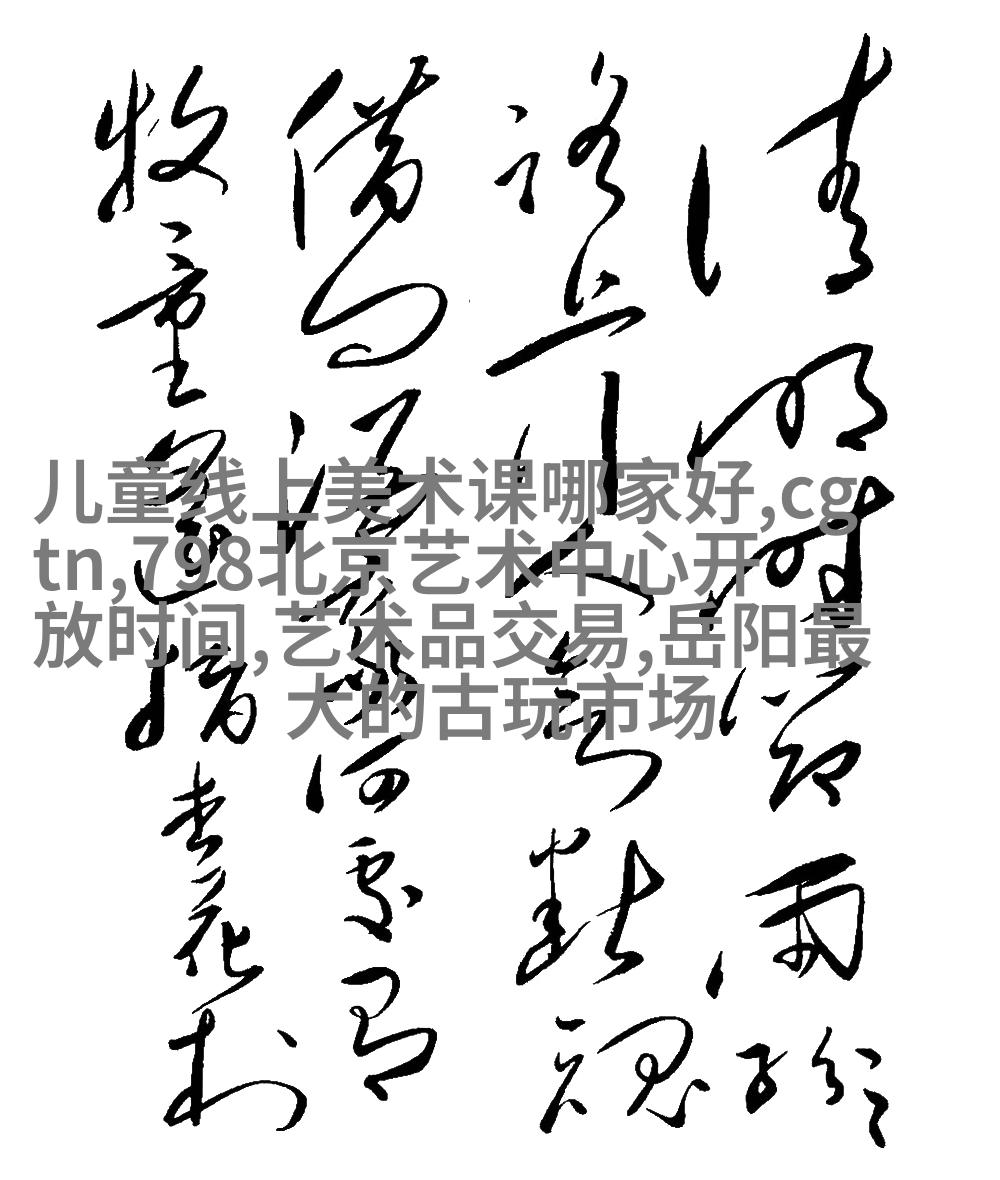 清明时節雨紛紛
路上行人欲斷魂
借问酒家何處有
牧童遥指杏花村
儿童线上美术课哪家好,cg
tn,798北京艺术中心开
放时间,艺术品交易,岳阳最
大的古玩市场